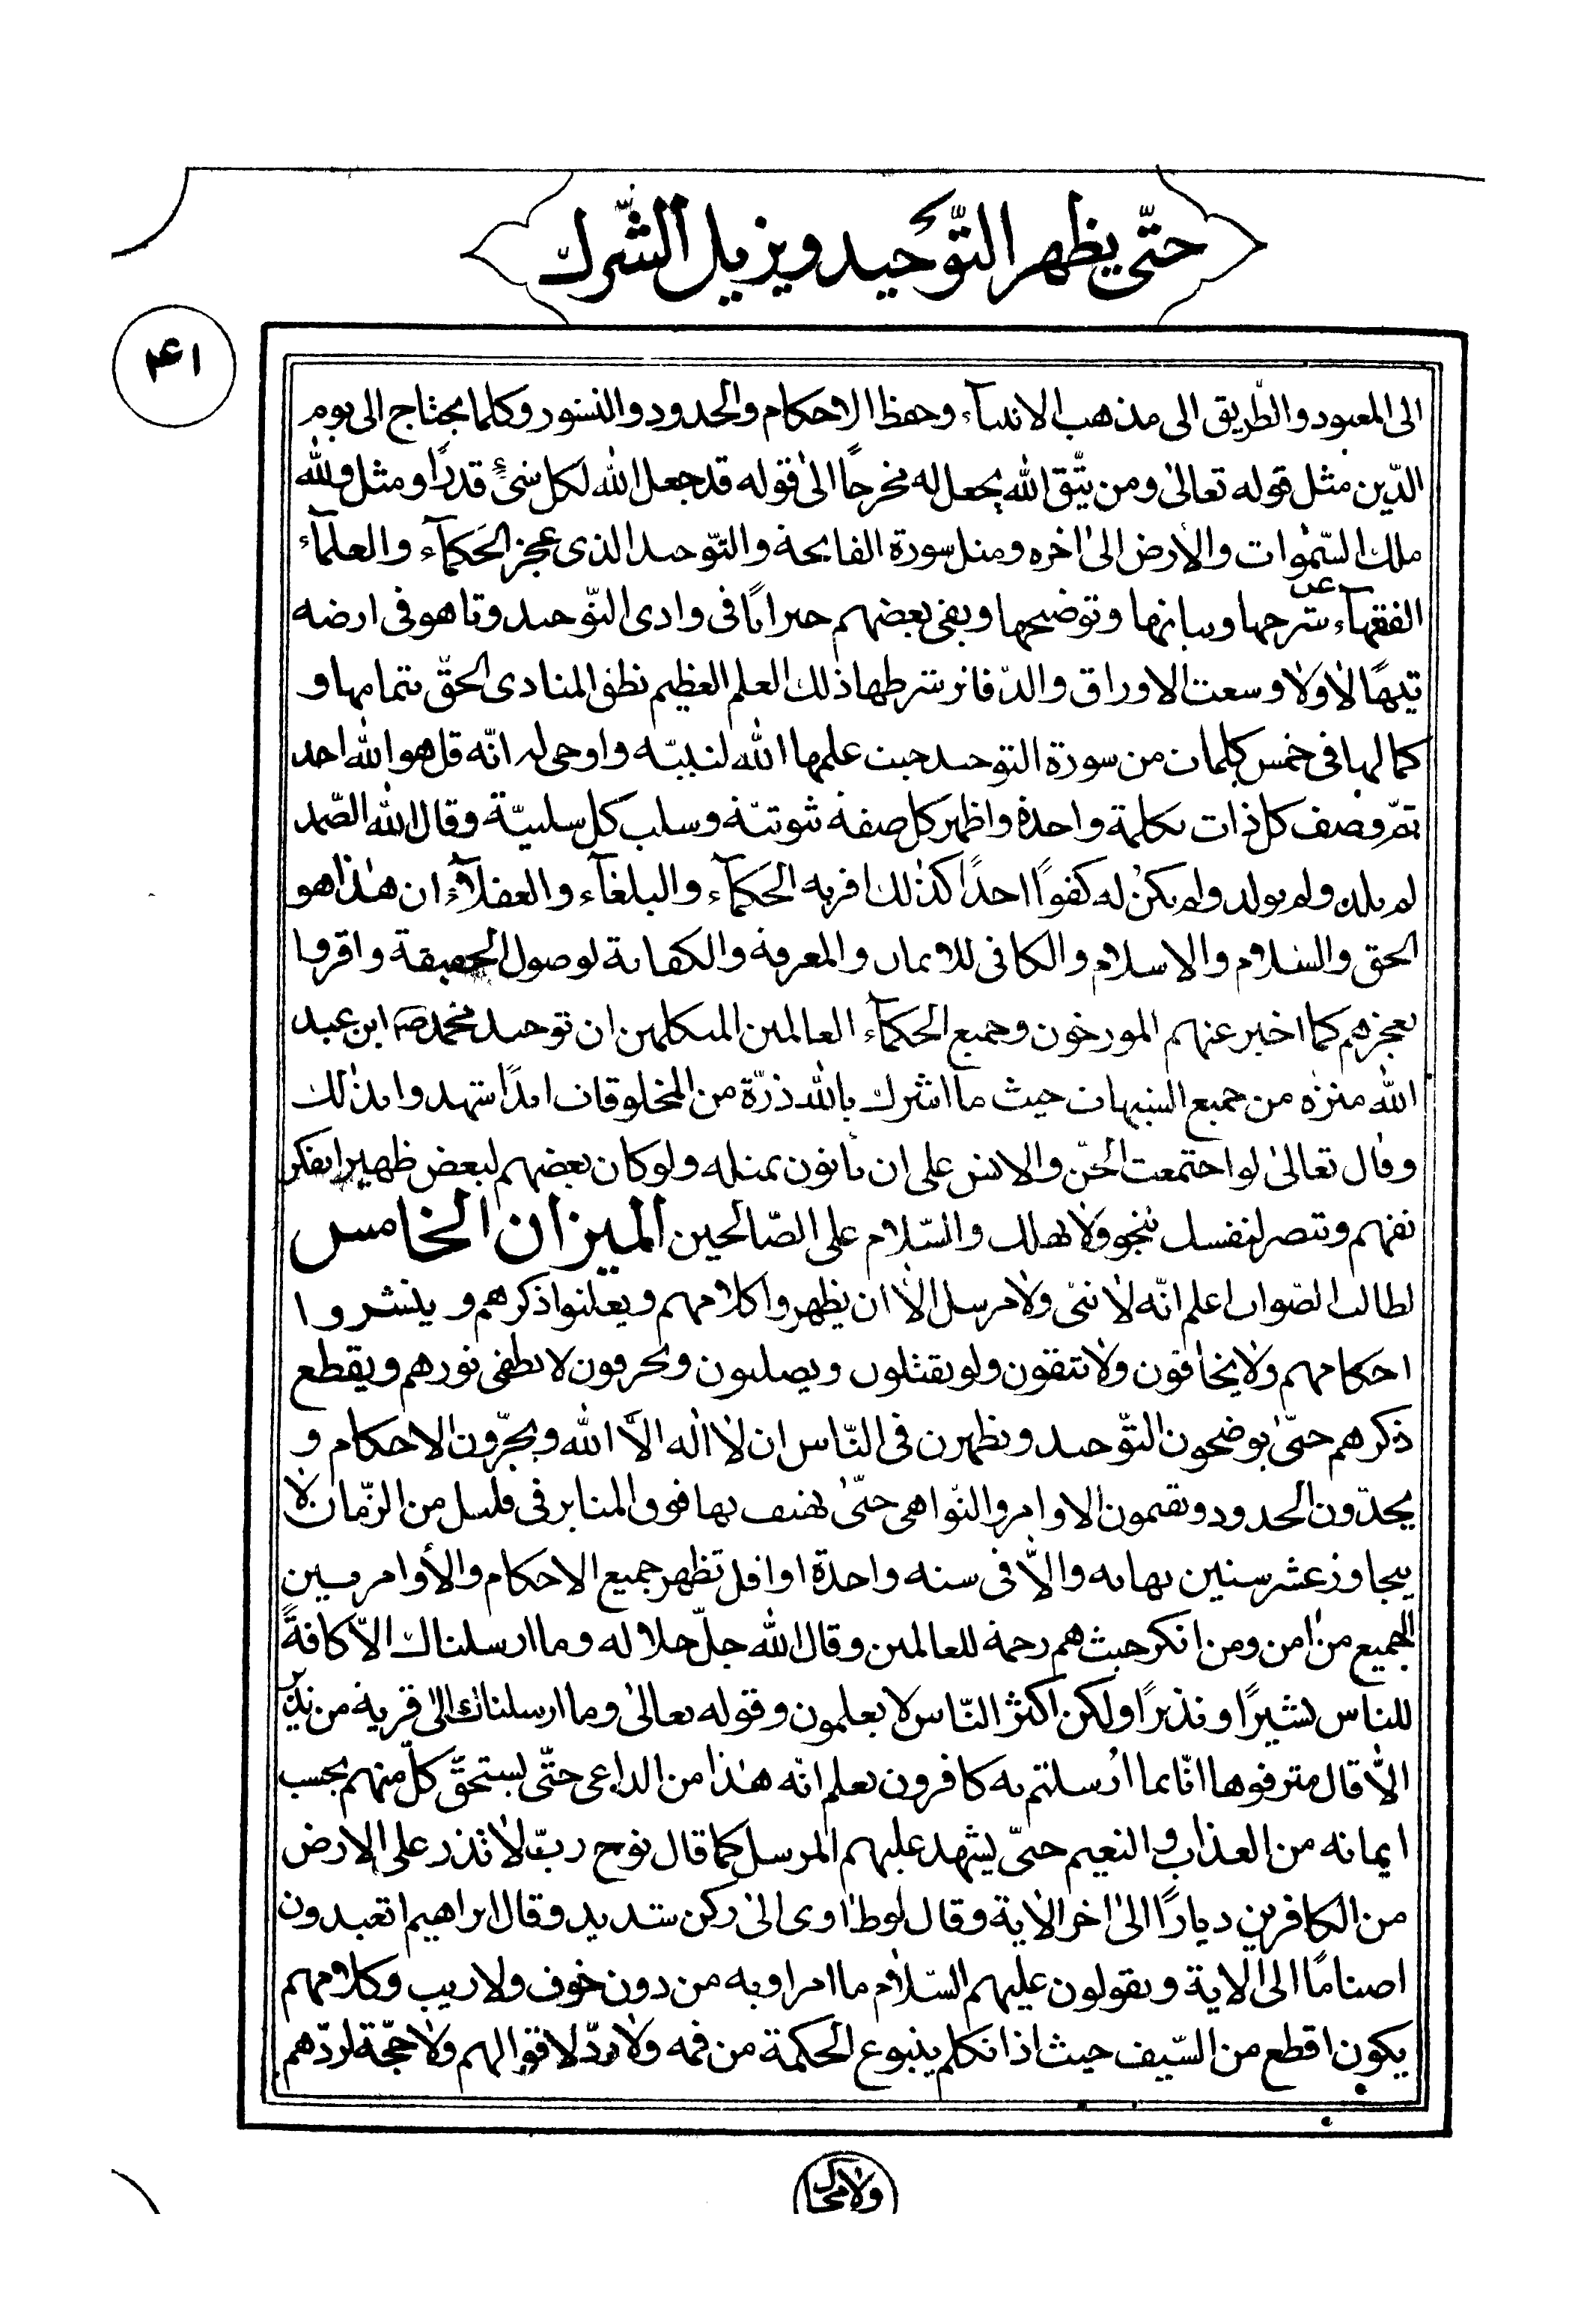 حتّى يظهر التّوحيد و يزيل الشّرك
۴۱
الى المعبود و الطّريق الى مذهب الانبيآء وحفظ الاحكام والحدود والنشور وكلما يحتاج الى يوم
الدّين مثل قوله تعالىٰ ومن يتّق الله يجعل له مخرجًا الىٰ قوله قد جعل الله لكل شئٍ قدرًا ومثل ولله
ملك السّمٰوات والأرض الىٰ اخره ومثل سورة الفاتحة والتّوحيد الذى عجز الحكمآء والعلمآء
الفقهآء عن شرحها وبيانها وتوضيحها وبقى بعضهم حيرانًا فى وادى التّوحيد وتاهو فى ارضه
تيهًا لأولا وسعت الاوراق والدّفاتر شرطها ذلك العلم العظيم نطق المنادى الحقّ بتمامها و
كمالها فى خمس كلمات من سورة التوحيد حيث علمها الله لنبيّه واوحى له انّه قل هو الله احد
ثمّ وصف كل ذات بكلمة واحدة واظهر كل صفة ثبوتيّة وسلب كل سلبيّة وقال الله الصّمد
لم يلد ولم يولد ولم يكن له كفوًا احدًا كذلك اقر به الحكمآء والبلغآء والعقلآء ان هٰذا هو
الحق والسلام والاسلام والكافى للايمان والمعرفة والكفاية لوصول الحقيقة واقروا
بعجزهم كما اخبر عنهم المورخون وجميع الحكمآء العالمين المتكلمين ان توحيد محمد صہ ابن عبد
الله منزه من جميع الشبهات حيث ما اشرك بالله ذرّة من المخلوقات ابدًا شهدوا بذلك
وقال تعالىٰ لو اجتمعت الجنّ والانس على ان يأتون بمثله ولو كان بعضهم لبعض ظهيرا بفكر
تفهم وتنصر لنفسك تنجو ولا تهلك والسّلام على الصّالحين الميزان الخامس
لطالب الصّواب اعلم انّه لا نبىّ ولا مرسل الّا ان يظهروا كلامهم ويعلنوا ذكرهم و ينشروا
احكامهم ولا يخافون ولا يتقون ولو يقتلون ويصلبون ويحرقون لا يطفى نورهم ويقطع
ذكرهم حتىّٰ يوضحون التّوحيد ويظهرن فى النّاس ان لا اله الاّ الله ويجرّون الاحكام و
يحدّون الحدود ويقيمون الاوامر والنّواهى حتىّٰ يهتف بها فوق المنابر فى قليل من الزّمان لا
يتجاوز عشر سنين نهايه والّا فى سنه واحدة او اقل تظهر جميع الاحكام والأوامر وبين
الجميع من امن ومن انكر حيث هم رحمة للعالمين وقال الله جلّ جلاله وما ارسلناك الاّ كافةً
للناس بشيرًا و نذيرًا ولكن اكثر النّاس لا يعلمون وقوله تعالىٰ وما ارسلناك الىٰ قرية من نذير
الاّ قال مترفوها انّا بما اُرسلتم به كافرون يعلم انّه هٰذا من الداعى حتّى يستحقّ كلّ منهم بحسب
ايمانه من العذاب والنعيم حتىّ يشهد عليهم المرسل كما قال نوح ربّ لا تذر على الارض
من الكافرين ديارًا الىٰ اخر الاية وقال لوط اوى الىٰ ركن شديد وقال ابراهيم اتعبدون
اصنامًا الى الاية ويقولون عليهم السّلام ما امراو به من دون خوف ولا ريب وكلامهم
يكون اقطع من السّيف حيث اذا تكلم ينبوع الحكمة من فمه ولا ردّ لاقوالهم ولا حجّة لردّهم
ولا محال